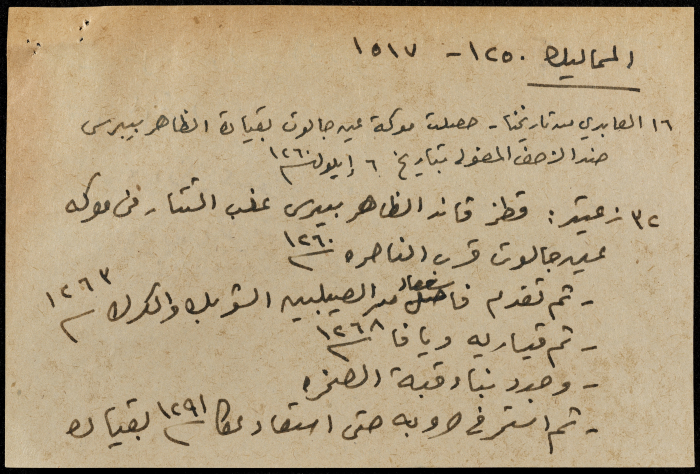 المماليك ١٢٥٠ - ١٥١٧
١٦ العابدي من تاريخنا - حصلت معركة عين جالوت بقيادة الظاهر بيبرس
ضد الزحف المغولي بتاريخ ٦ إيلول سنة ١٢٦٠
٣٢ زعيتر : قطز قائد الظاهر بيبرس غلب التتار في معركة
عين جالوت قرب الناصره سنة ١٢٦٠
- ثم تقدم فاستعاد من الصليبيين الشوبك والكرك سنة ١٢٦٣
- ثم قيساريه ويافا سنة ١٢٦٨
- وجدد بناء قبة الصخره
- ثم استمر في حروبه حتى استعاد عكا سنة ١٢٩١ بقيادة